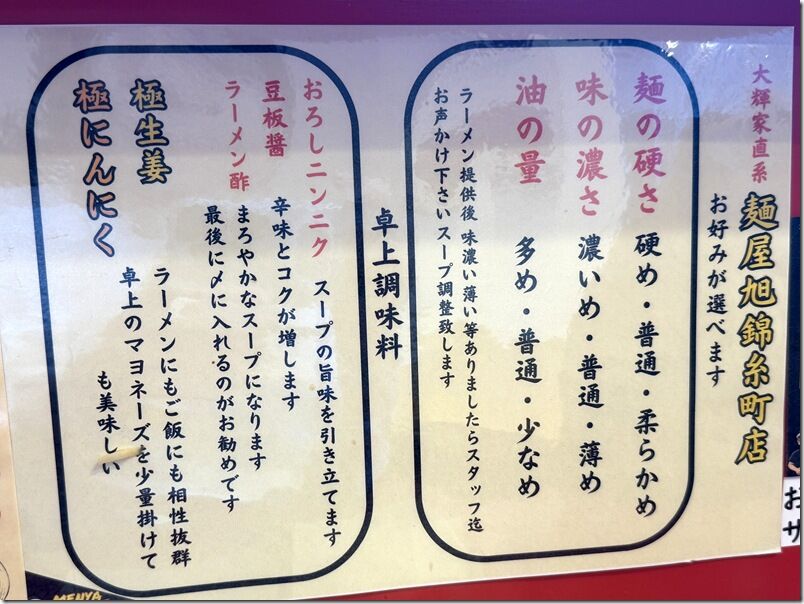 大輝家直系
麺屋旭錦糸町店
お好みが選べます
麺の硬さ 硬め・普通・柔らかめ
味の濃さ 濃いめ・普通・薄め
油の量 多め・普通・少なめ
ラーメン提供後 味濃い薄い等ありましたらスタッフ迄
お声かけ下さいスープ調整致します
卓上調味料
おろしニンニク スープの旨味を引き立てます
豆板醤 辛味とコクが増します
ラーメン酢 まろやかなスープになります
最後に〆に入れるのがお勧めです
極生姜
極にんにく
ラーメンにもご飯にも相性抜群
卓上のマヨネーズを少量掛けて
も美味しい
MENYA
お
サ